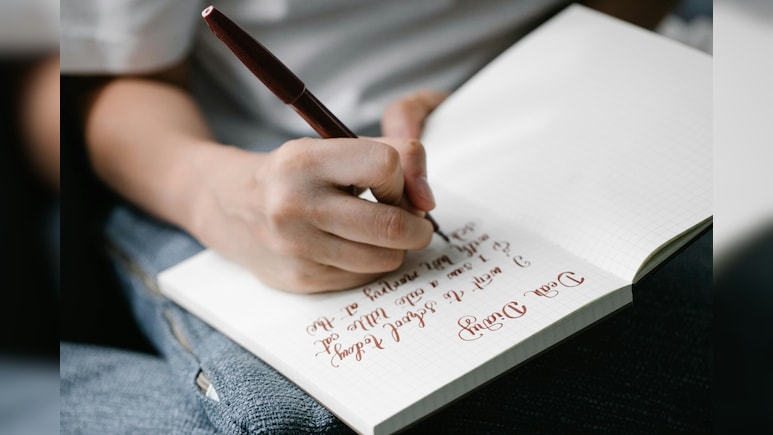 Dear Diary
I went to School today
I saw a cute little cat
with her mommy at the